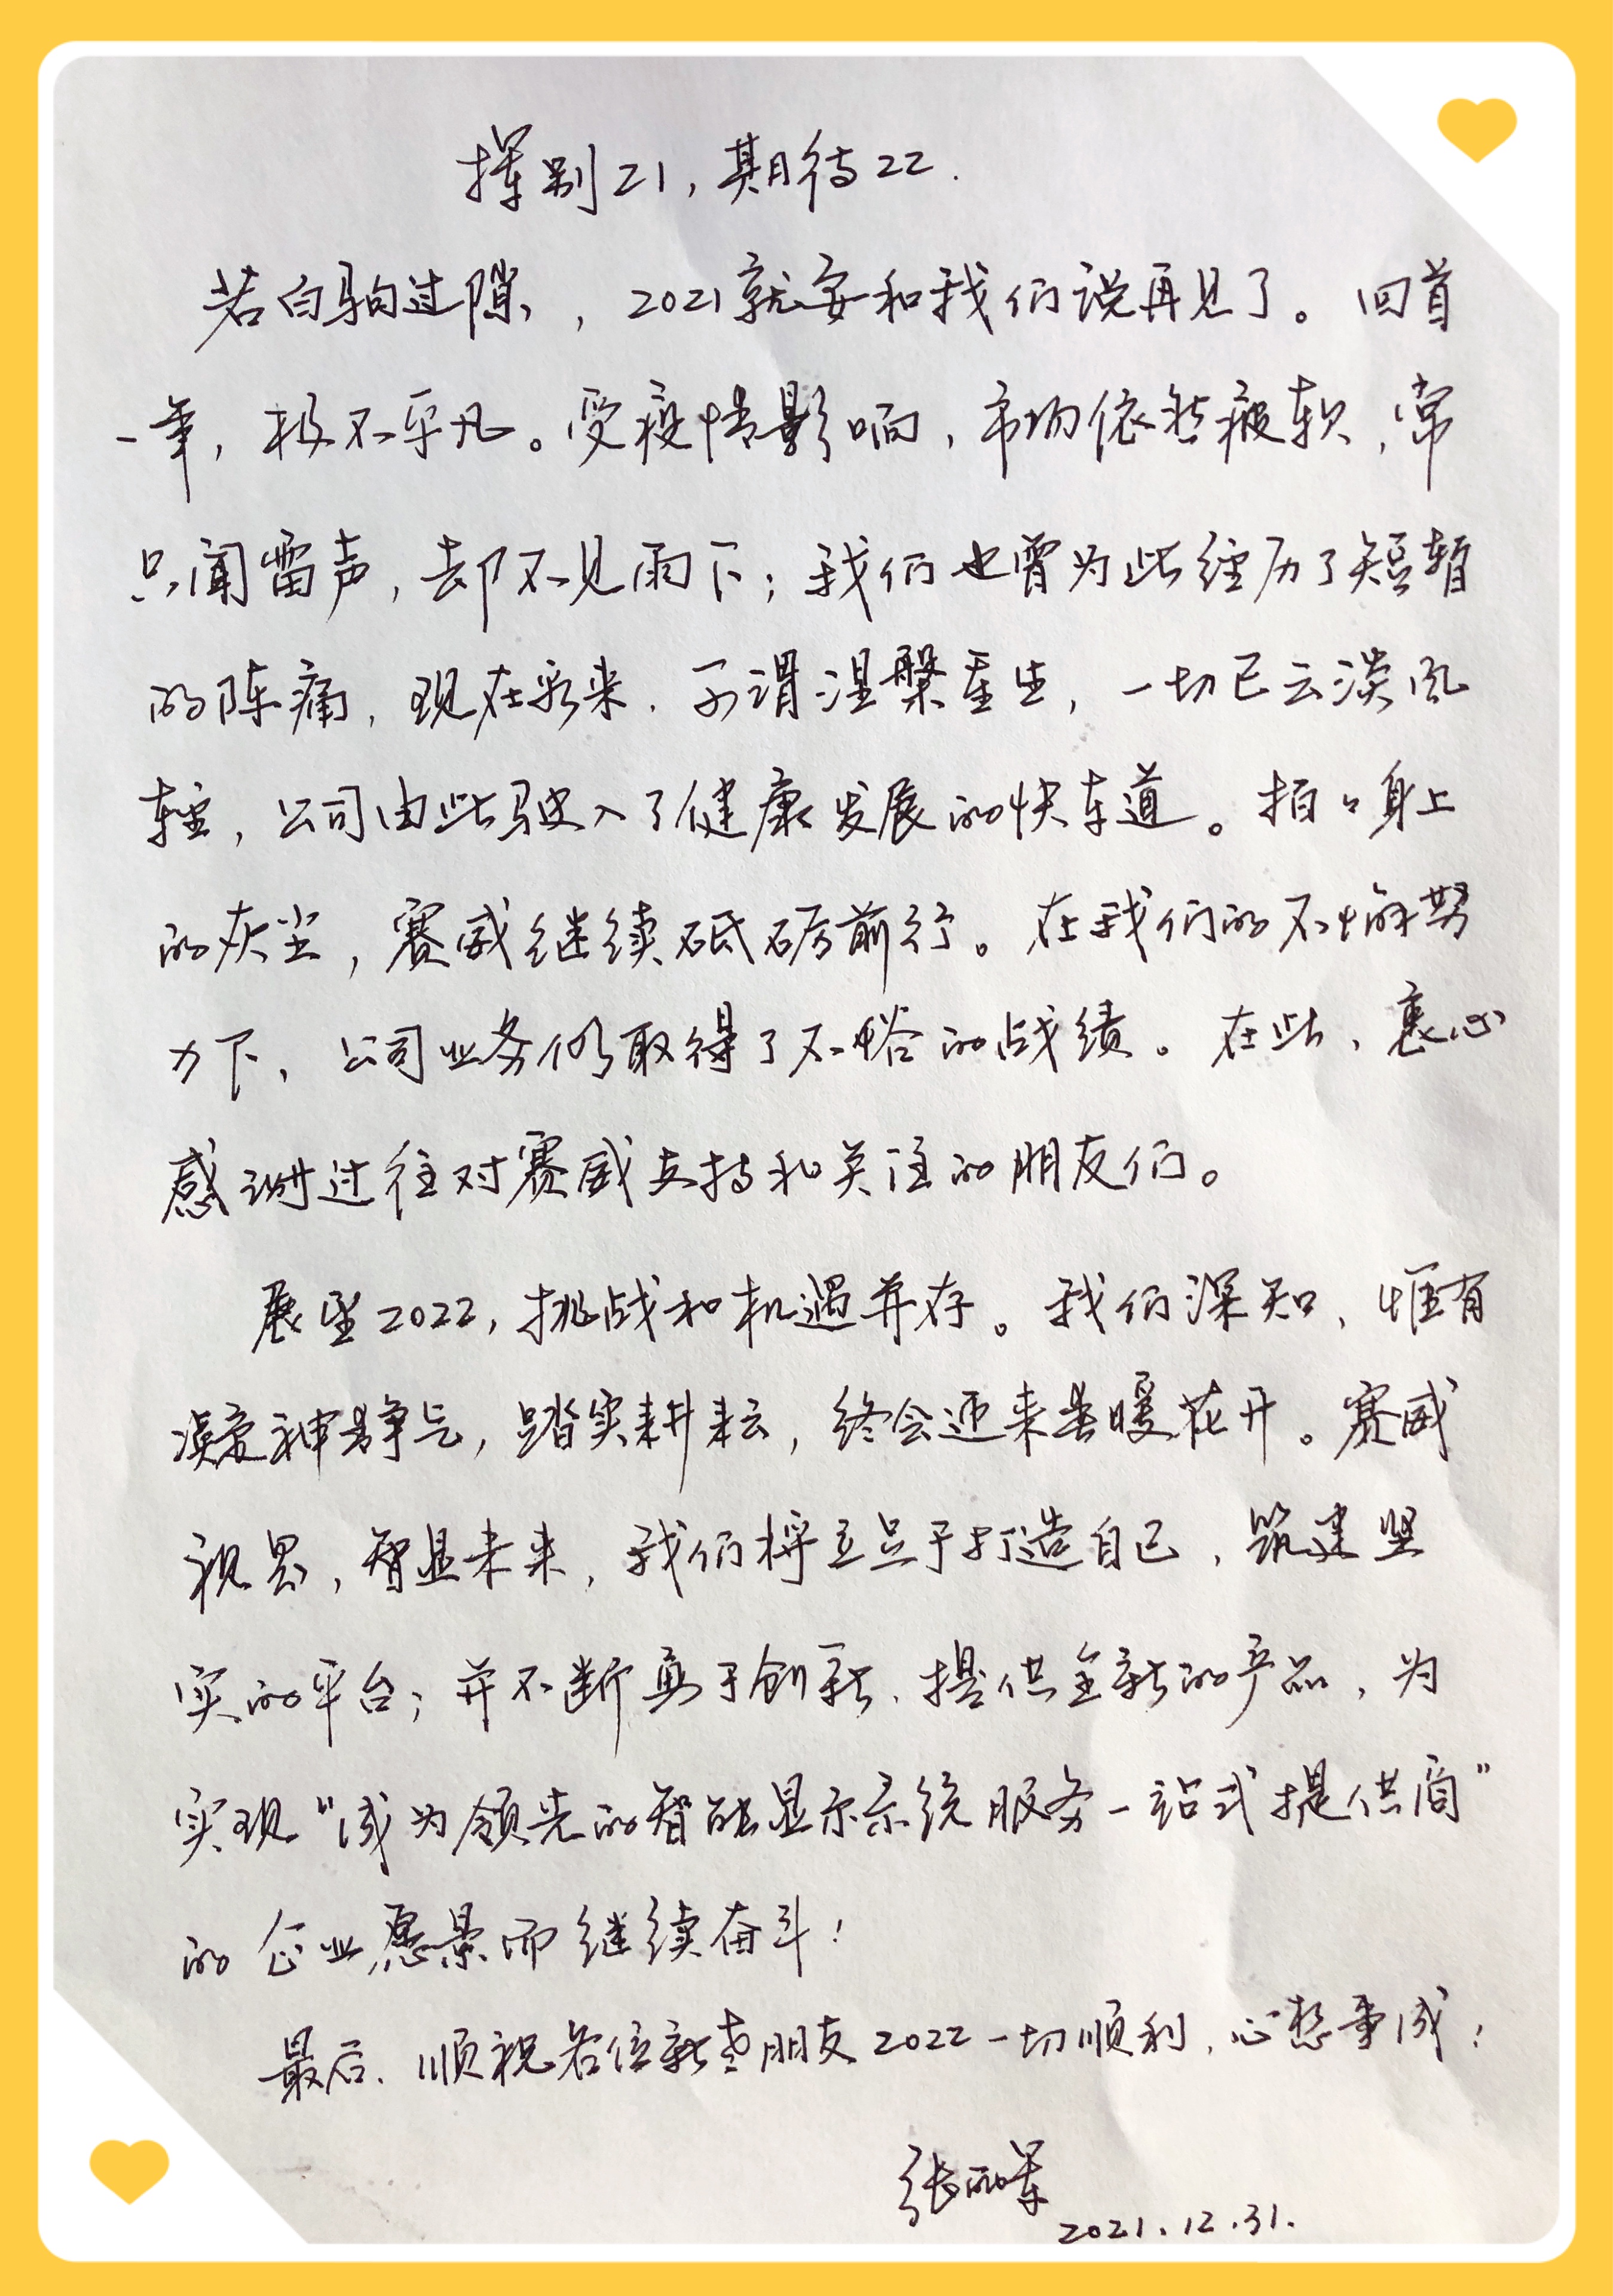 挥别21，期待22.
若白驹过隙，2021就要和我们说再见了。回首
一年，极不平凡。受疫情影响，市场依然疲软，常
只闻雷声，却不见雨下；我们也曾为此经历了短暂
的阵痛，现在看来，可谓涅槃重生，一切已云淡风
轻，公司由此驶入了健康发展的快车道。拍々身上
的灰尘，赛威继续砥砺前行。在我们的不懈努
力下，公司业务仍取得了不俗的战绩。在此，衷心
感谢过往对赛威支持和关注的朋友们。
展望2022，挑战和机遇并存。我们深知，惟有
凝神静气，踏实耕耘，终会迎来春暖花开。赛威
视界，智显未来，我们将立足于打造自己，筑建坚
实的平台；并不断勇于创新，提供全新的产品，为
实现“成为领先的智能显示系统服务一站式提供商”
的企业愿景而继续奋斗！
最后，顺祝各位新老朋友2022一切顺利，心想事成！
张军
2021.12.31.